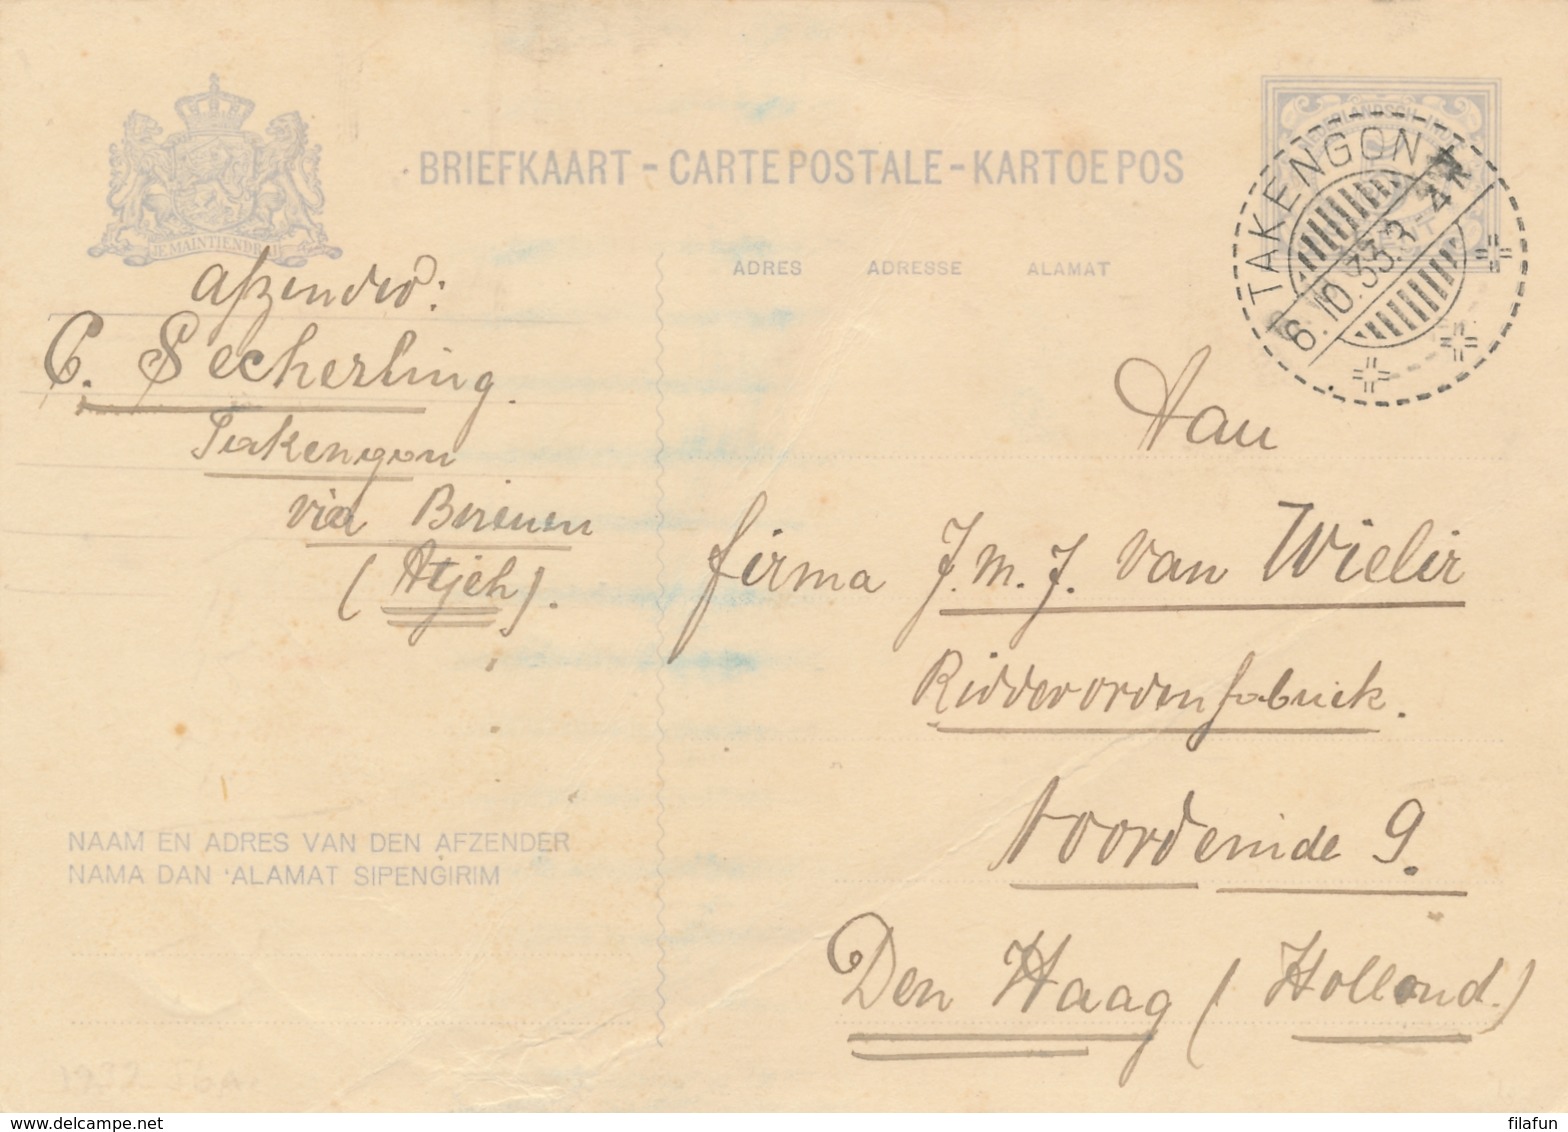 BRIEFKAART - CARTE POSTALE - KARTOE POS
JE MAINTIENDRAI
ADRES ADRESSE ALAMAT
TAKENGON
6.10.33.3-4N
afzender:
C. Secherling.
Takengon
via Bireuen
(Atjeh).
Aan
firma J. M. J. van Wielir
Ridderordenfabriek.
Noordeinde 9.
Den Haag (Holland.)
NAAM EN ADRES VAN DEN AFZENDER
NAMA DAN ALAMAT SIPENGIRIM
www.delcampe.net
filafun